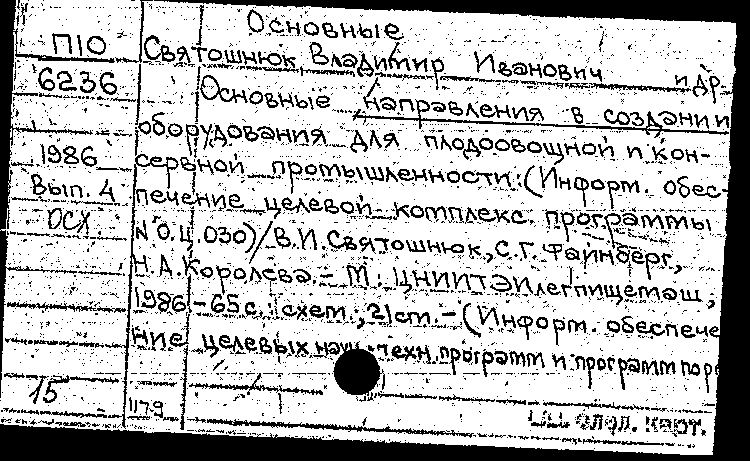 Основные
П10
Святошнюк, Владимир Иванович и др.
6236
Основные направления в создании
оборудования для плодоовощной и кон-
1986
сервной промышленности: (Информ. обес-
Вып. 4
печение целевой комплекс. программы
ОСХ
N О.Ц.030)/В.И.Святошнюк, С.Г. Файнберг,
Н.А.Королева.- М.: ЦНИИТЭИлегпищемаш,
1986.-65с.: схем.; 21см.-(Информ. обеспече
ние целевых техн. программ и программ
15
1179
карт.